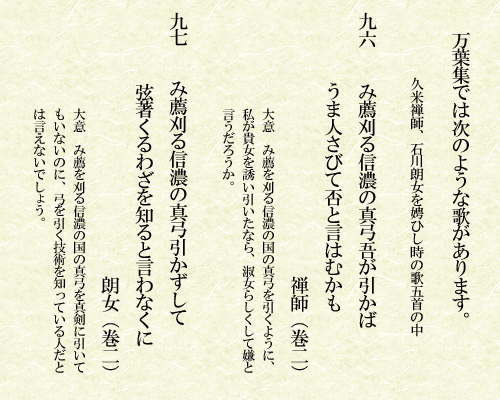 万葉集では次のような歌があります。
久米禅師、石川朗女を娉ひし時の歌五首の中
九六　み薦刈る信濃の真弓吾が引かば
うま人さびて否と言はむかも
禅師（巻二）
大意　み薦を刈る信濃の国の真弓を引くように、
私が貴女を誘い引いたなら、淑女らしくして嫌と
言うだろうか。
九七　み薦刈る信濃の真弓引かずして
弦著くるわざを知ると言わなくに
朗女（巻二）
大意　み薦を刈る信濃の国の真弓を真剣に引いて
もいないのに、弓を引く技術を知っている人だと
は言えないでしょう。